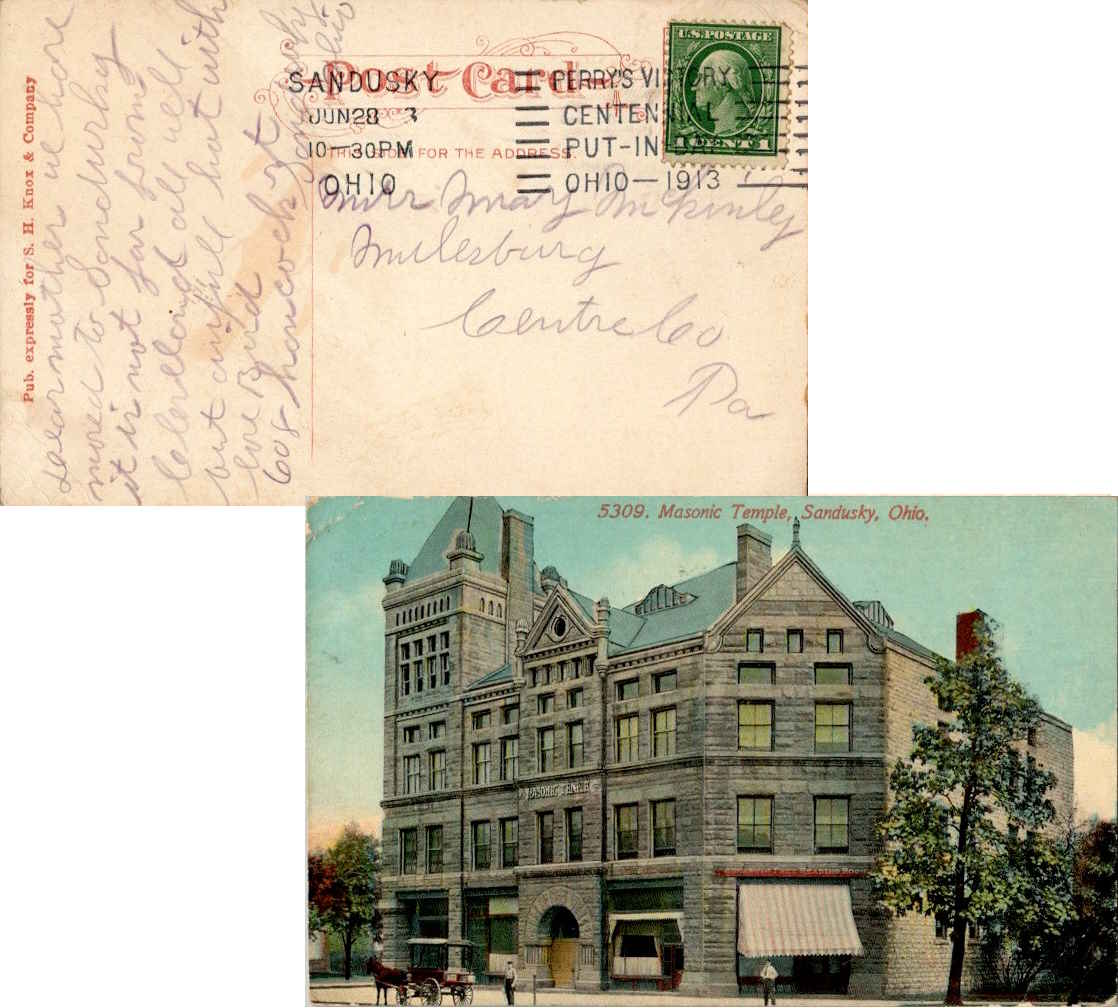 Post Card
THIS SIDE FOR THE ADDRESS.
SANDUSKY
JUN 28
10-30PM
OHIO
PERRY'S VICTORY
CENTEN
PUT-IN
OHIO-1913
U.S.POSTAGE
1 CENT 1
Pub. expressly for S. H. Knox & Company
Dear mother we have
moved to Sandusky
it is not far from
all well
but awful hot with
love Bird
608 hancock st
Sandusky
Ohio
Miss Mary McKinley
Milesburg
Centre Co
Pa
5309. Masonic Temple, Sandusky, Ohio.
MASONIC TEMPLE